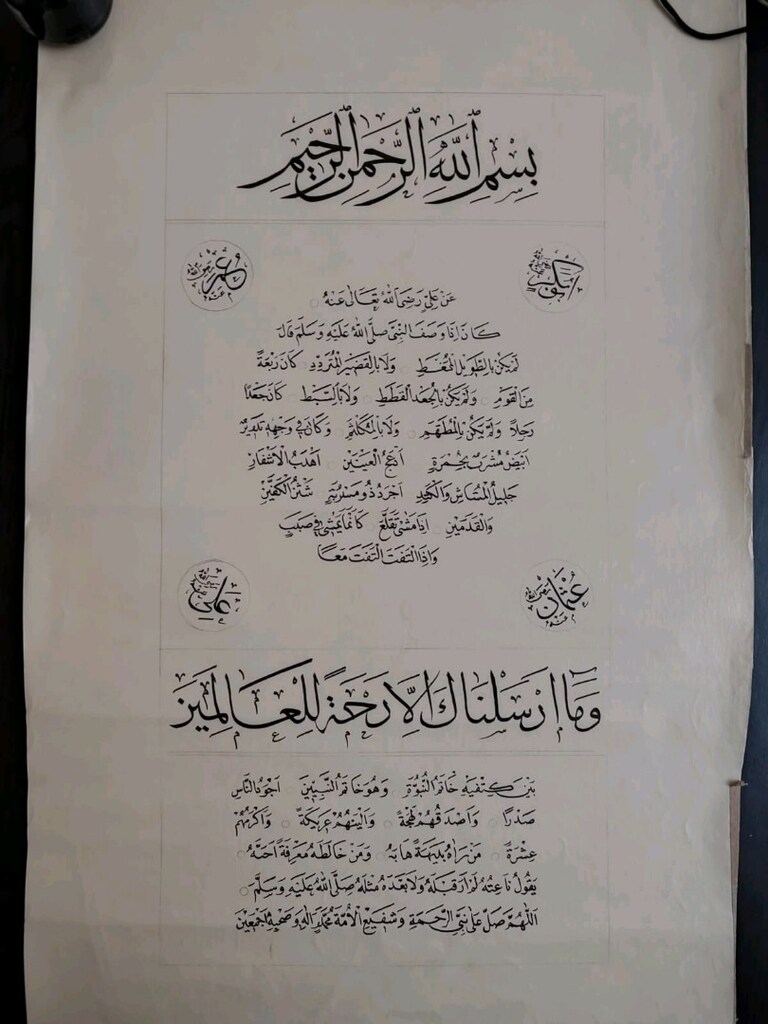 بِسْمِ اللّٰهِ الرَّحْمٰنِ الرَّحِيْمِ
ابوبكر رضي الله عنه
عمر رضي الله عنه
عَنْ عَلِيٍّ رَضِيَ اللّٰهُ تَعَالٰى عَنْهُ
كَانَ اِذَا وَصَفَ النَّبِيَّ صَلَّى اللّٰهُ عَلَيْهِ وَسَلَّمَ قَالَ
لَمْ يَكُنْ بِالطَّوِيْلِ الْمُمَغَّطِ وَلَا بِالْقَصِيْرِ الْمُتَرَدِّدِ كَانَ رَبْعَةً
مِنَ الْقَوْمِ وَلَمْ يَكُنْ بِالْجَعْدِ الْقَطَطِ وَلَا بِالسَّبِطِ كَانَ جَعْدًا
رَجِلًا وَلَمْ يَكُنْ بِالْمُطَهَّمِ وَلَا بِالْمُكَلْثَمِ وَكَانَ فِي وَجْهِهِ تَدْوِيْرٌ
اَبْيَضُ مُشْرَبٌ بِحُمْرَةٍ اَدْعَجُ الْعَيْنَيْنِ اَهْدَبُ الْاَشْفَارِ
جَلِيْلُ الْمُشَاشِ وَالْكَتَدِ اَجْرَدُ ذُو مَسْرُبَةٍ شَثْنُ الْكَفَّيْنِ
وَالْقَدَمَيْنِ اِذَا مَشٰى تَقَلَّعَ كَاَنَّمَا يَمْشِي فِي صَبَبٍ
وَاِذَا الْتَفَتَ الْتَفَتَ مَعًا
عثمان رضي الله عنه
علي رضي الله عنه
وَمَا اَرْسَلْنَاكَ اِلَّا رَحْمَةً لِلْعَالَمِيْنَ
بَيْنَ كَتِفَيْهِ خَاتَمُ النُّبُوَّةِ وَهُوَ خَاتَمُ النَّبِيِّيْنَ اَجْوَدُ النَّاسِ
صَدْرًا وَاَصْدَقُهُمْ لَهْجَةً وَاَلْيَنُهُمْ عَرِيْكَةً وَاَكْرَمُهُمْ
عِشْرَةً مَنْ رَاٰهُ بَدِيْهَةً هَابَهُ وَمَنْ خَالَطَهُ مَعْرِفَةً اَحَبَّهُ
يَقُوْلُ نَاعِتُهُ لَمْ اَرَ قَبْلَهُ وَلَا بَعْدَهُ مِثْلَهُ صَلَّى اللّٰهُ عَلَيْهِ وَسَلَّمَ
اَللّٰهُمَّ صَلِّ عَلٰى نَبِيِّ الرَّحْمَةِ وَشَفِيْعِ الْاُمَّةِ مُحَمَّدٍ وَاٰلِهِ وَصَحْبِهِ اَجْمَعِيْنَ